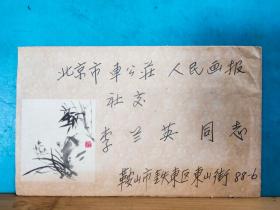 北京市車公莊 人民画报
社交
李兰英 同志
鞍山市鉄東区東山街 88-6